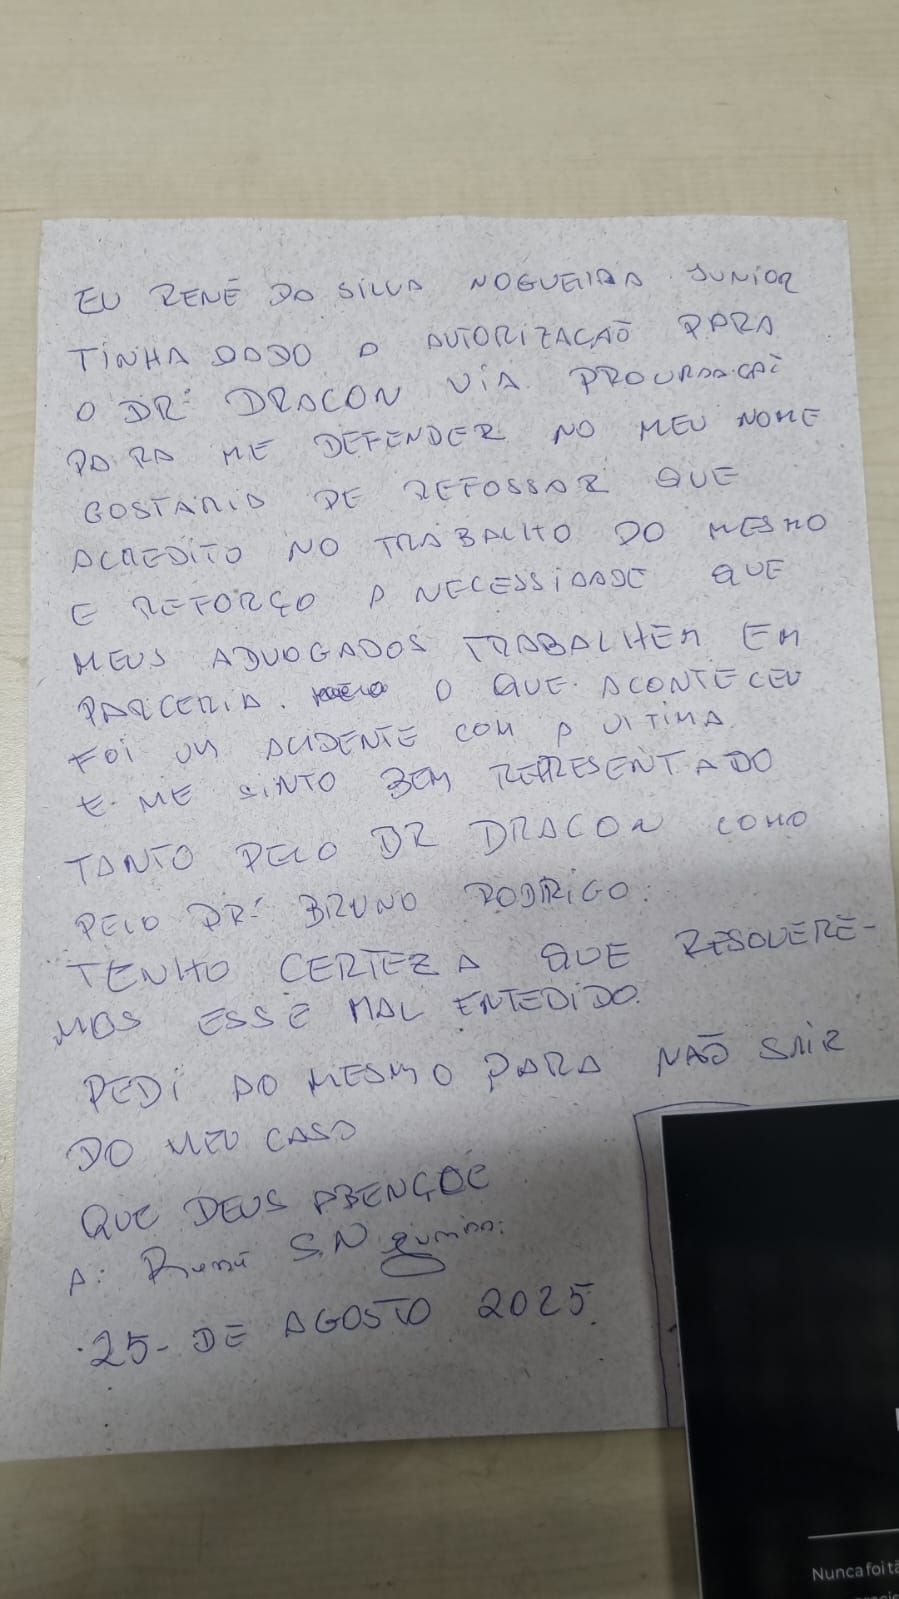 EU RENÊ DA SILVA NOGUEIRA JUNIOR
TINHA DADO A AUTORIZAÇÃO PARA
O DR: DRACON VIA PROCURAÇAÕ
PARA ME DEFENDER NO MEU NOME
GOSTARIA DE REFOSSAR QUE
ACREDITO NO TRABALHO DO MESMO
E REFORÇO A NECESSIDADE QUE
MEUS ADVOGADOS TRABALHEM EM
PARCERIA. O QUE ACONTECEU
FOI UM ACIDENTE COM A VITIMA
E ME SINTO BEM REPRESENTADO
TANTO PELO DR DRACON COMO
PELO DR: BRUNO RODRIGO.
TENHO CERTEZA QUE RESOLVERE-
MOS ESSE MAL ENTEDIDO.
PEDI AO MESMO PARA NÃO SAIR
DO MEU CASO
QUE DEUS ABENÇOE
A: Renê S.N
25- DE AGOSTO 2025
Nunca foi